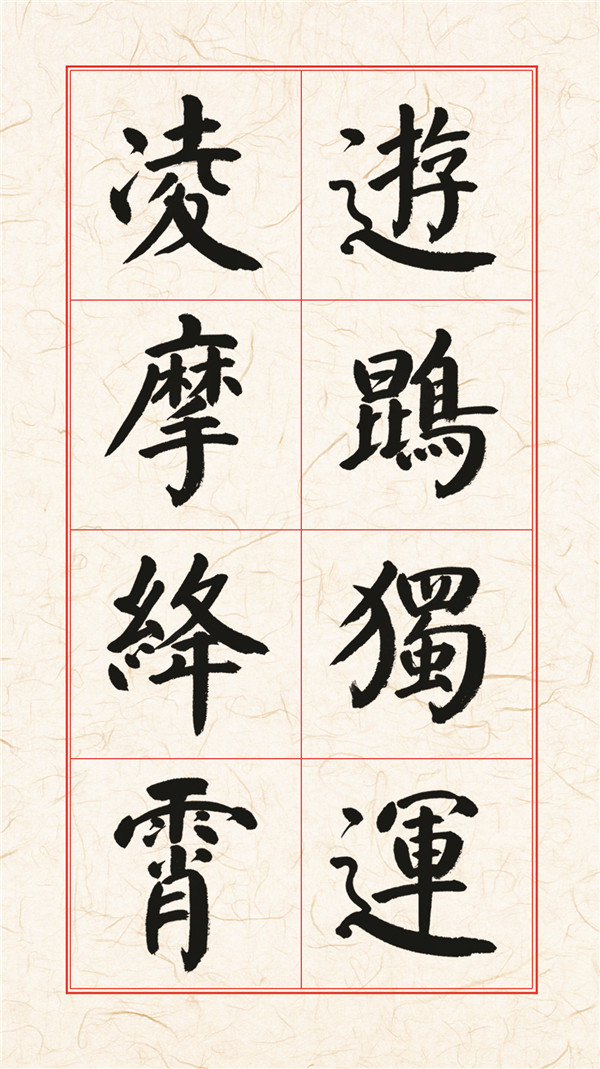 遊鵾獨運
凌摩絳霄